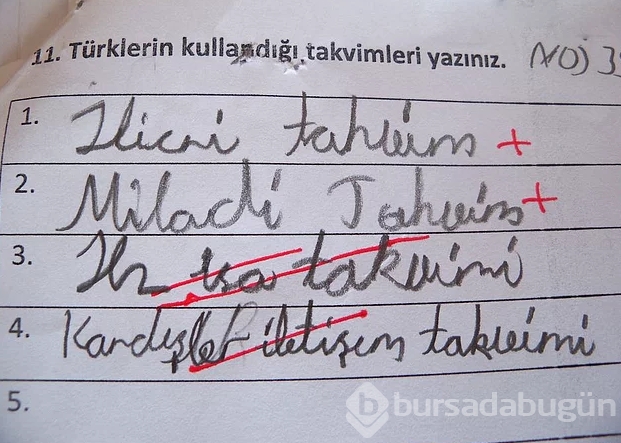 11. Türklerin kullandığı takvimleri yazınız. NO) 3
1. Hicri takvim +
2. Miladi Takvim +
3. Hz isa takvimi
4. Kardeşler iletişim takvimi
5.
bursadabugün